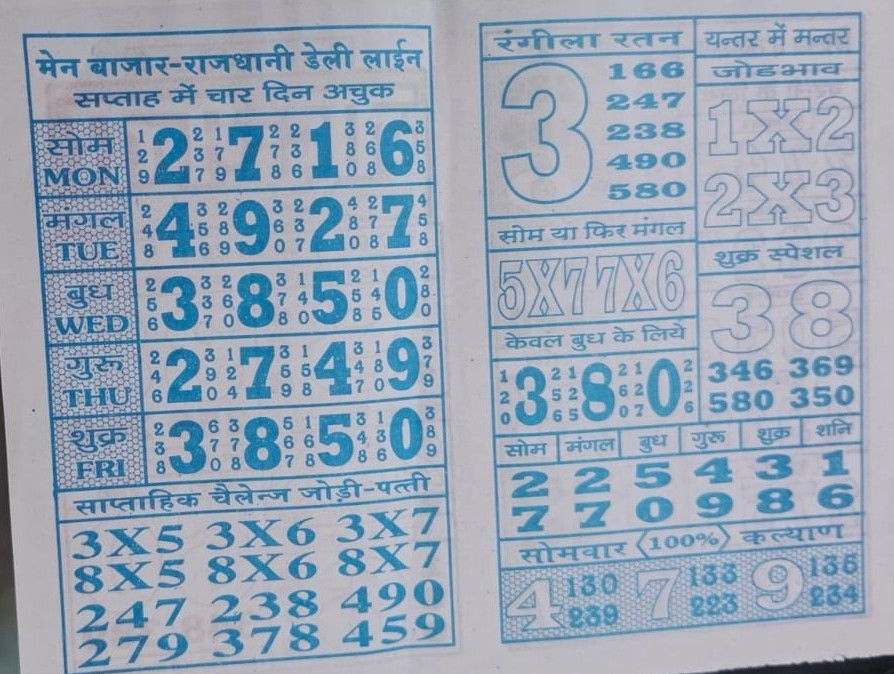 मेन बाजार-राजधानी डेली लाईन
सप्ताह में चार दिन अचुक
सोम 1 2 1 2 2 3 2 3
2 2 3 7 7 7 3 1 8 6 6 5
MON 9 7 9 8 6 0 8 8
मंगल 2 3 2 3 2 4 2 4
4 4 5 8 9 6 3 2 8 7 7 5
TUE 8 6 9 0 7 0 8 8
बुध 2 3 2 3 1 2 1 2
5 3 3 6 8 7 4 5 5 4 0 8
WED 6 7 0 8 0 8 5 0
गुरू 2 3 1 3 1 3 1 3
4 2 9 2 7 5 5 4 4 8 9 7
THU 6 0 4 9 8 7 0 9
शुक्र 2 6 3 5 1 3 1 3
3 3 7 7 8 6 6 5 4 3 0 8
FRI 8 0 8 7 8 8 6 9
साप्ताहिक चैलेन्ज जोड़ी-पत्ती
3X5 3X6 3X7
8X5 8X6 8X7
247 238 490
279 378 459
रंगीला रतन
3
166
247
238
490
580
सोम या फिर मंगल
5X7 7X6
केवल बुध के लिये
1 2 1 2 1 2
2 3 5 2 8 6 2 0 2
0 6 5 0 7 6
यन्तर में मन्तर
जोडभाव
1X2
2X3
शुक्र स्पेशल
38
346 369
580 350
सोम मंगल बुध गुरू शुक्र शनि
2 2 5 4 3 1
7 7 0 9 8 6
सोमवार (100%) कल्याण
4 130 7 133 9 136
239 223 234